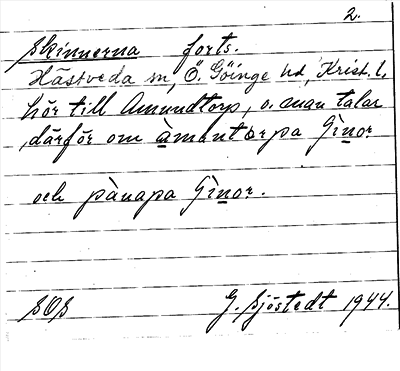 2.
Skinnerna forts.
Hästveda sn, Ö. Göinge hd, Krist. l.
hör till Amundtorp, o. man talar
därför om àmuntɒrpa Gìnor
och pànapa Gìnor.
SOS G. Sjöstedt 1944.